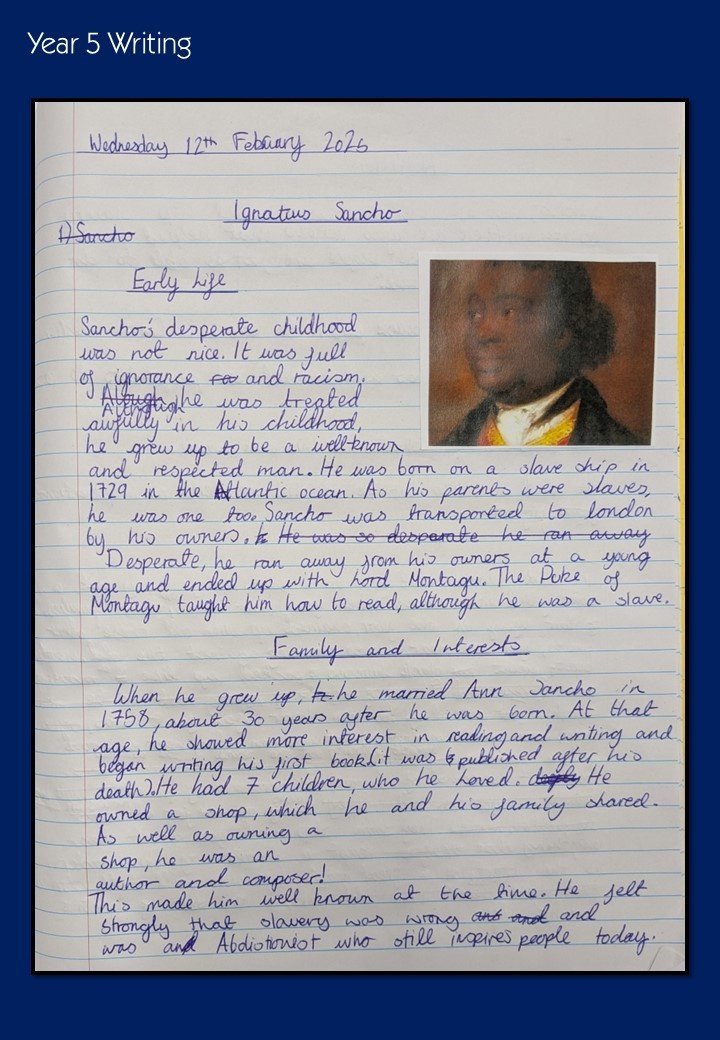 Year 5 Writing
Wednesday 12th February 2026
Ignatius Sancho
1) Sancho
Early Life
Sancho's desperate childhood
was not nice. It was full
of ignorance and racism.
Although he was treated
awfully in his childhood,
he grew up to be a well-known
and respected man. He was born on a slave ship in
1729 in the Atlantic ocean. As his parents were slaves,
he was one too. Sancho was transported to london
by his owners. He was so desparate he ran away
Desperate, he ran away from his owners at a young
age and ended up with Lord Montagu. The Duke of
Montagu taught him how to read, although he was a slave.
Family and Interests
When he grew up, he married Ann Sancho in
1758, about 30 years after he was born. At that
age, he showed more interest in reading and writing and
began writing his first book (it was published after his
death). He had 7 children, who he loved. deeply He
owned a shop, which he and his family shared.
As well as owning a
shop, he was an
author and composer!
This made him well known at the time. He felt
strongly that slavery was wrong and and and
was an Abolitionist who still inspires people today.